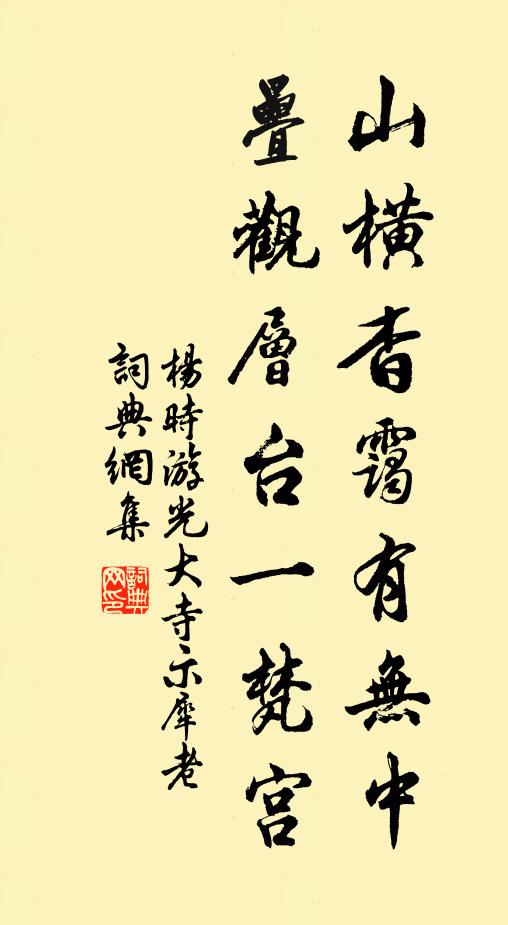 山橫杳靄有無中
疊觀層台一梵宮
楊時游光大寺示犀老
詞典網集
詞典网印